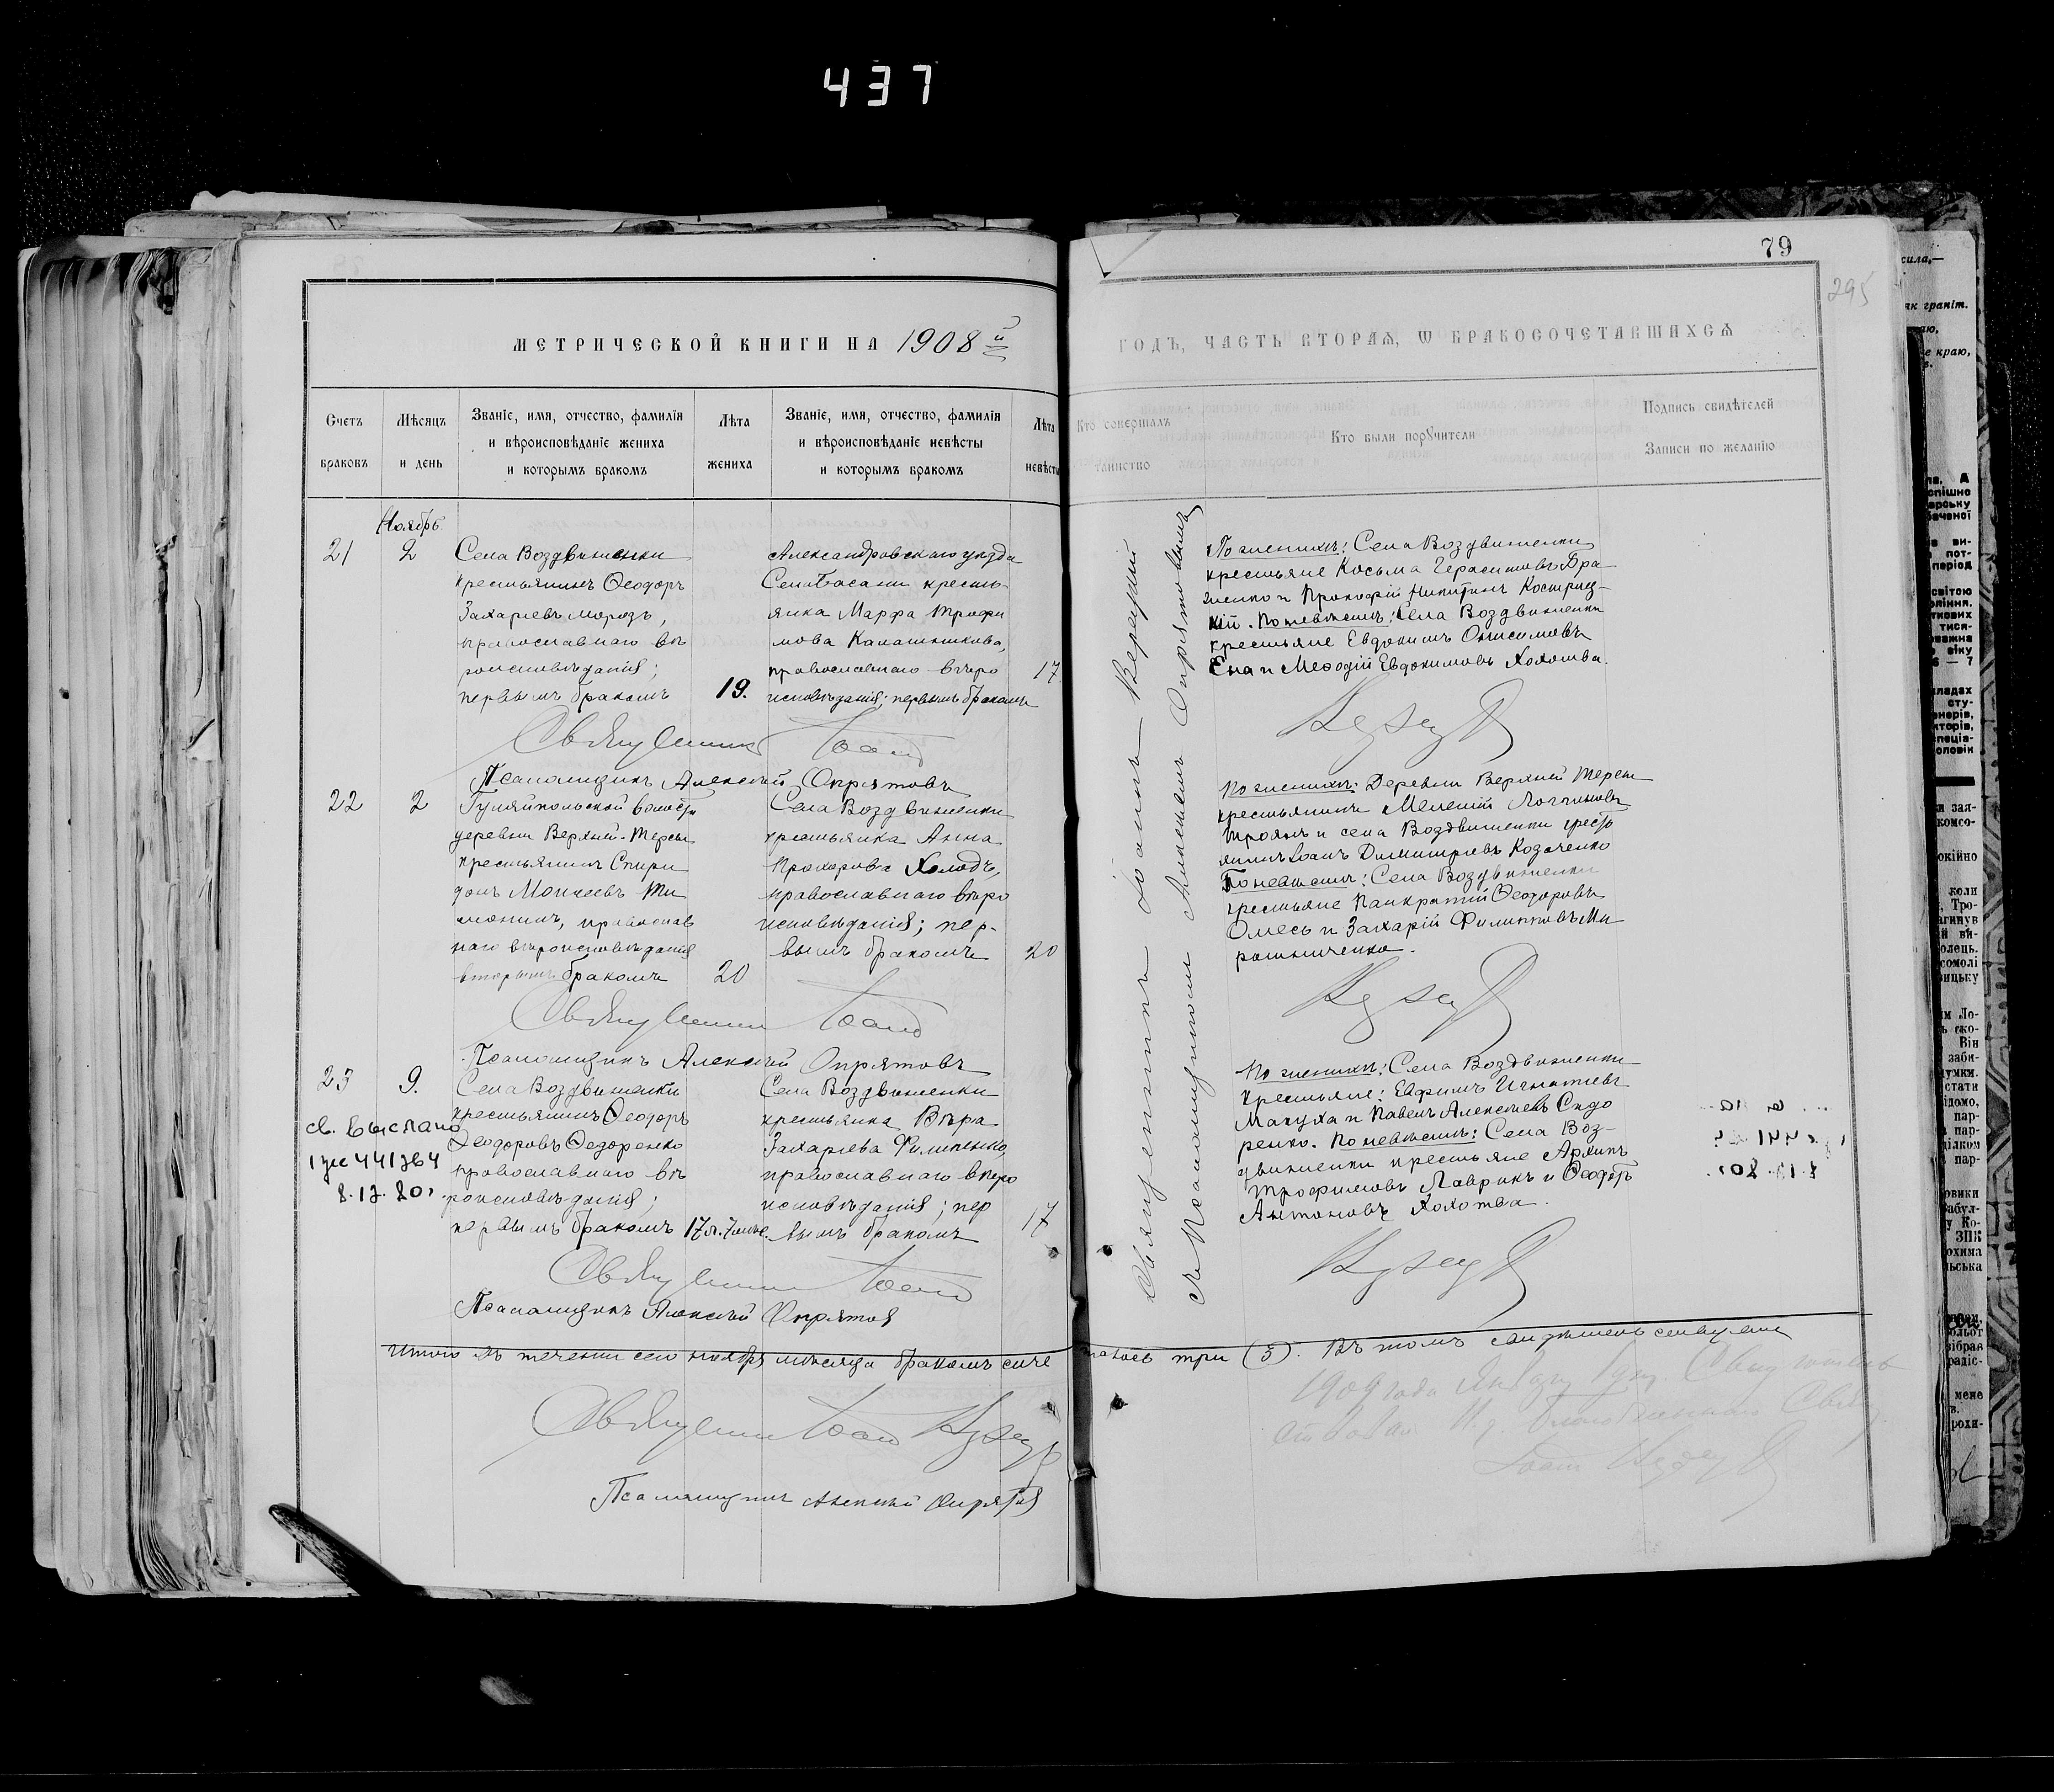 437
79
295
МЕТРИЧЕСКОЙ КНИГИ НА 1908й
ГОДЪ, ЧАСТЬ ВТОРАЯ, Ѡ БРАКОСОЧЕТАВШИХСЯ
Счетъ
браковъ
Мѣсяцъ
и день
Званіе, имя, отчество, фамилія
и вѣроисповѣданіе жениха
и которымъ бракомъ
Лѣта
жениха
Званіе, имя, отчество, фамилія
и вѣроисповѣданіе невѣсты
и которымъ бракомъ
Лѣта
невѣсты
Кто совершалъ
таинство
Кто были порꙋчители
Подпись свидѣтелей
Записи по желанію
Ноябрь
21
2
Села Воздвиженки
крестьянинъ Ѳеодоръ
Захаріевъ Морозъ,
православнаго вѣ
роисповѣданія;
первымъ бракомъ
19.
Александровскаго уѣзда
Села Басани кресть-
янка Марѳа Трофи
мова Калашникова,
православнаго вѣро
исповѣданія; первымъ бракомъ
17
Священникъ Іоаннъ
Псаломщикъ Алексѣй Опрятовъ
По женихѣ: Села Воздвиженки
крестьяне Косьма Герасимовъ Бра
женко и Прокофій Никитинъ Костриц-
кій. По невѣстѣ: Села Воздвиженки
крестьяне Евдокимъ Онисимовъ
Ена и Меѳодій Евдокимовъ Холотва.
22
2
Гуляйпольской волости
деревни Верхней-Терсы
крестьянинъ Спири
донъ Моисеевъ Ти
православ
наго вѣроисповѣданія
вторымъ бракомъ
20
Села Воздвиженки
крестьянка Анна
Прохорова Холодъ,
православнаго вѣро
исповѣданія; пер-
вымъ бракомъ
20
Священникъ Іоаннъ
Псаломщикъ Алексѣй Опрятовъ
По женихѣ: Деревни Верхней Терсы
крестьянинъ Мелетій Логгиновъ
Троянъ и села Воздвиженки кресть
янинъ Іоаннъ Димитріевъ Козаченко
По невѣстѣ: Села Воздвиженки
крестьяне Панкратій Ѳеодоровъ
Омесь и Захарій Филипповъ Ми
рошниченко.
23
9.
св. выслано
441764
8.12.80г
Села Воздвиженки
крестьянинъ Ѳеодоръ
Ѳеодоровъ Ѳедоренко
православнаго вѣ
роисповѣданія;
первымъ бракомъ
17л. 7мѣс.
Села Воздвиженки
крестьянка Вѣра
Захаріева Филипенко,
православнаго вѣро
исповѣданія; пер
вымъ бракомъ
17
Священникъ Іоаннъ
Псаломщикъ Алексѣй Опрятовъ
По женихѣ: Села Воздвиженки
крестьяне: Евфимъ Игнатіевъ
Мачуха и Павелъ Алексѣевъ Сидо
ренко. По невѣстѣ: Села Воз-
движенки крестьяне Архипъ
Трофимовъ Лаврикъ и Ѳеодотъ
Антоновъ Холотва.
Священникъ Іоаннъ
съ Псаломщикомъ Алексѣемъ Опрятовымъ
Итого въ теченіи сего ноября мѣсяца бракомъ соче
талось три (3). Въ томъ свидѣтельствуемъ
Священникъ Іоаннъ
Псаломщикъ Алексѣй Опрятовъ
1909 года Января